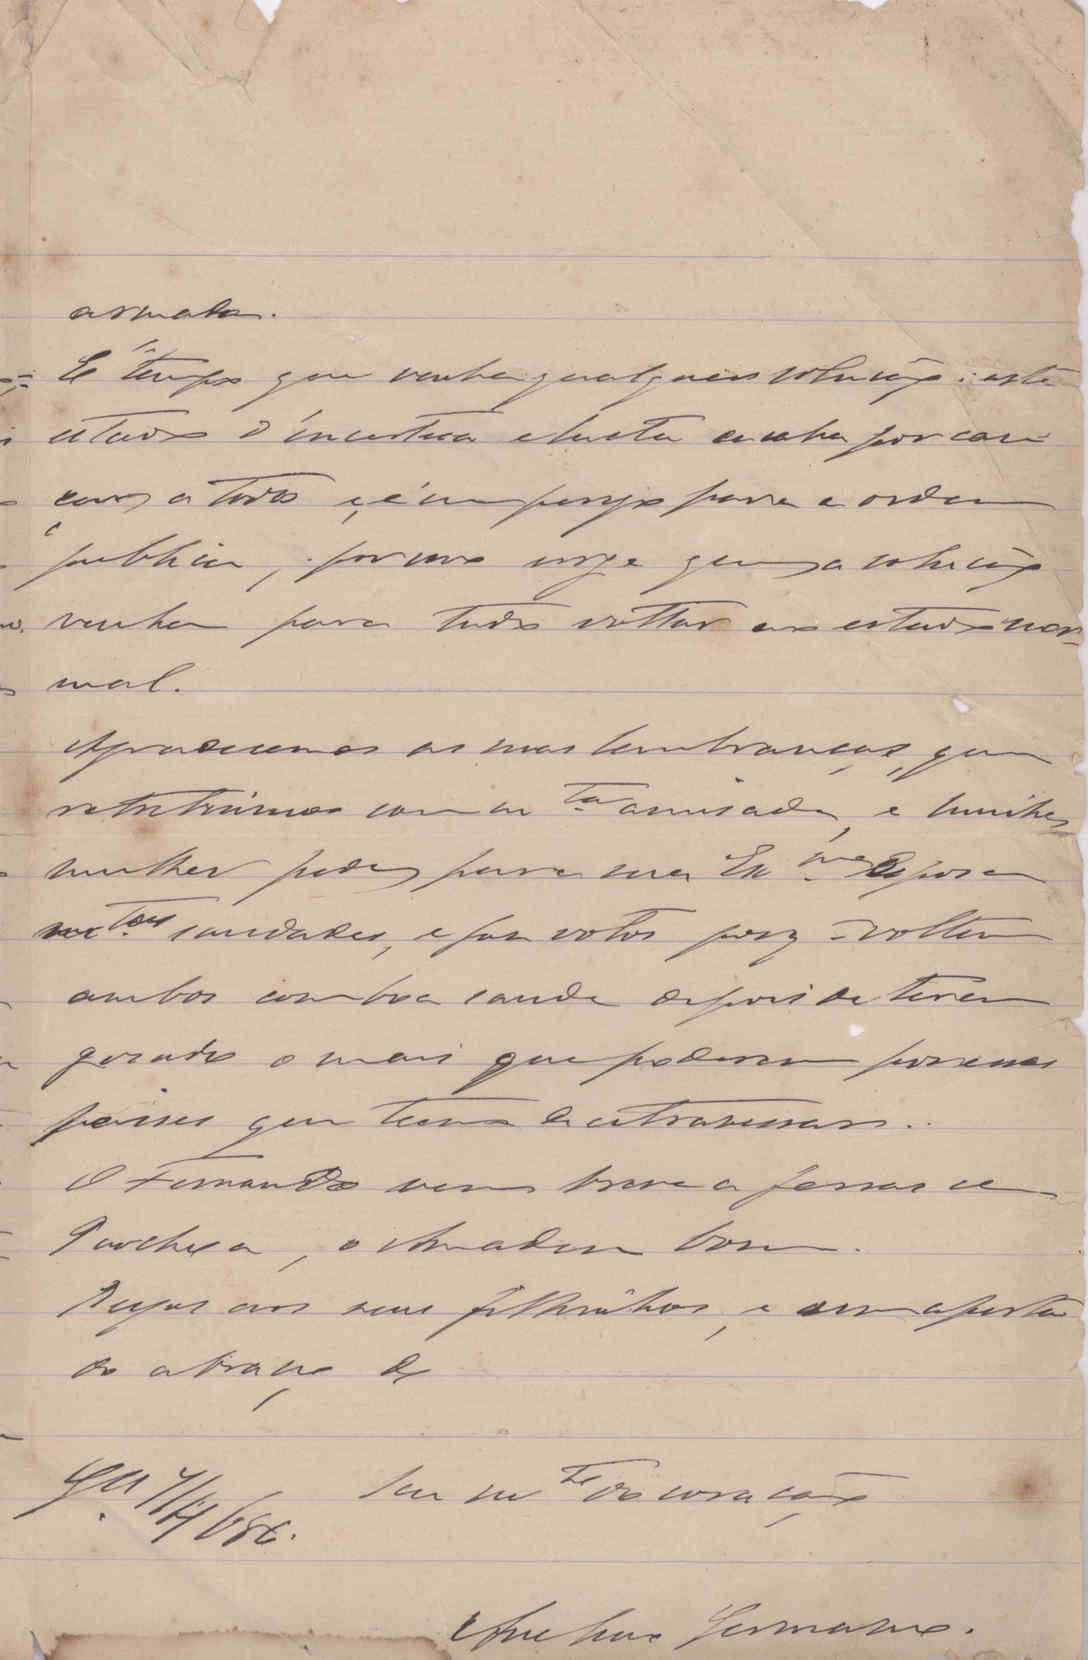 armada.
É tempo que venha qualquer solução: este
estado d'incerteza e lucta acaba por can
çar a todos, e é um perigo para a ordem
publica, por isso urge que a solução
venha para tudo voltar ao estado nor-
mal.
Agradecemos as suas lembranças, que
retribuimos com a amisade, e minha
mulher pede para sua Ex.ma Esposa
saudades, e faz votos para q voltem
ambos com boa saude depois de terem
gosado o mais que poderem por esses
paises que teem de atravessar.
O Fernando vem breve a ferias
, o bom.
Beijos aos seus filhinhos, e um aperta
do abraço de
Seu do coração
7/4/86.
Germano.